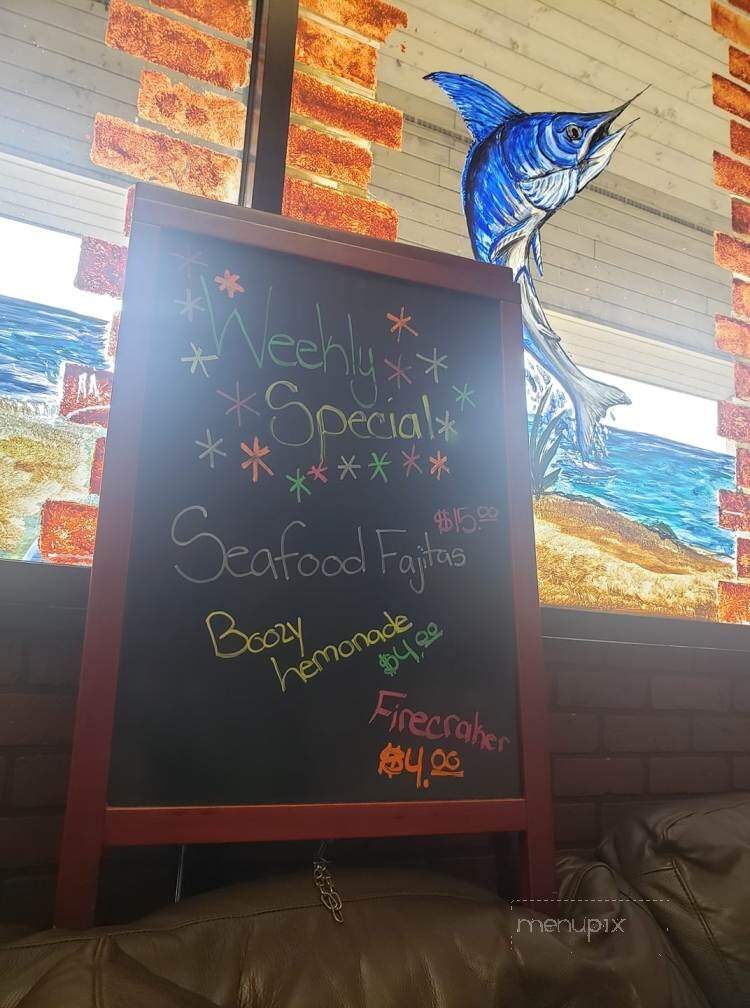 Weekly
Special
$15.00
Seafood Fajitas
Boozy
Lemonade
$4.00
Firecraker
$4.00
menupix